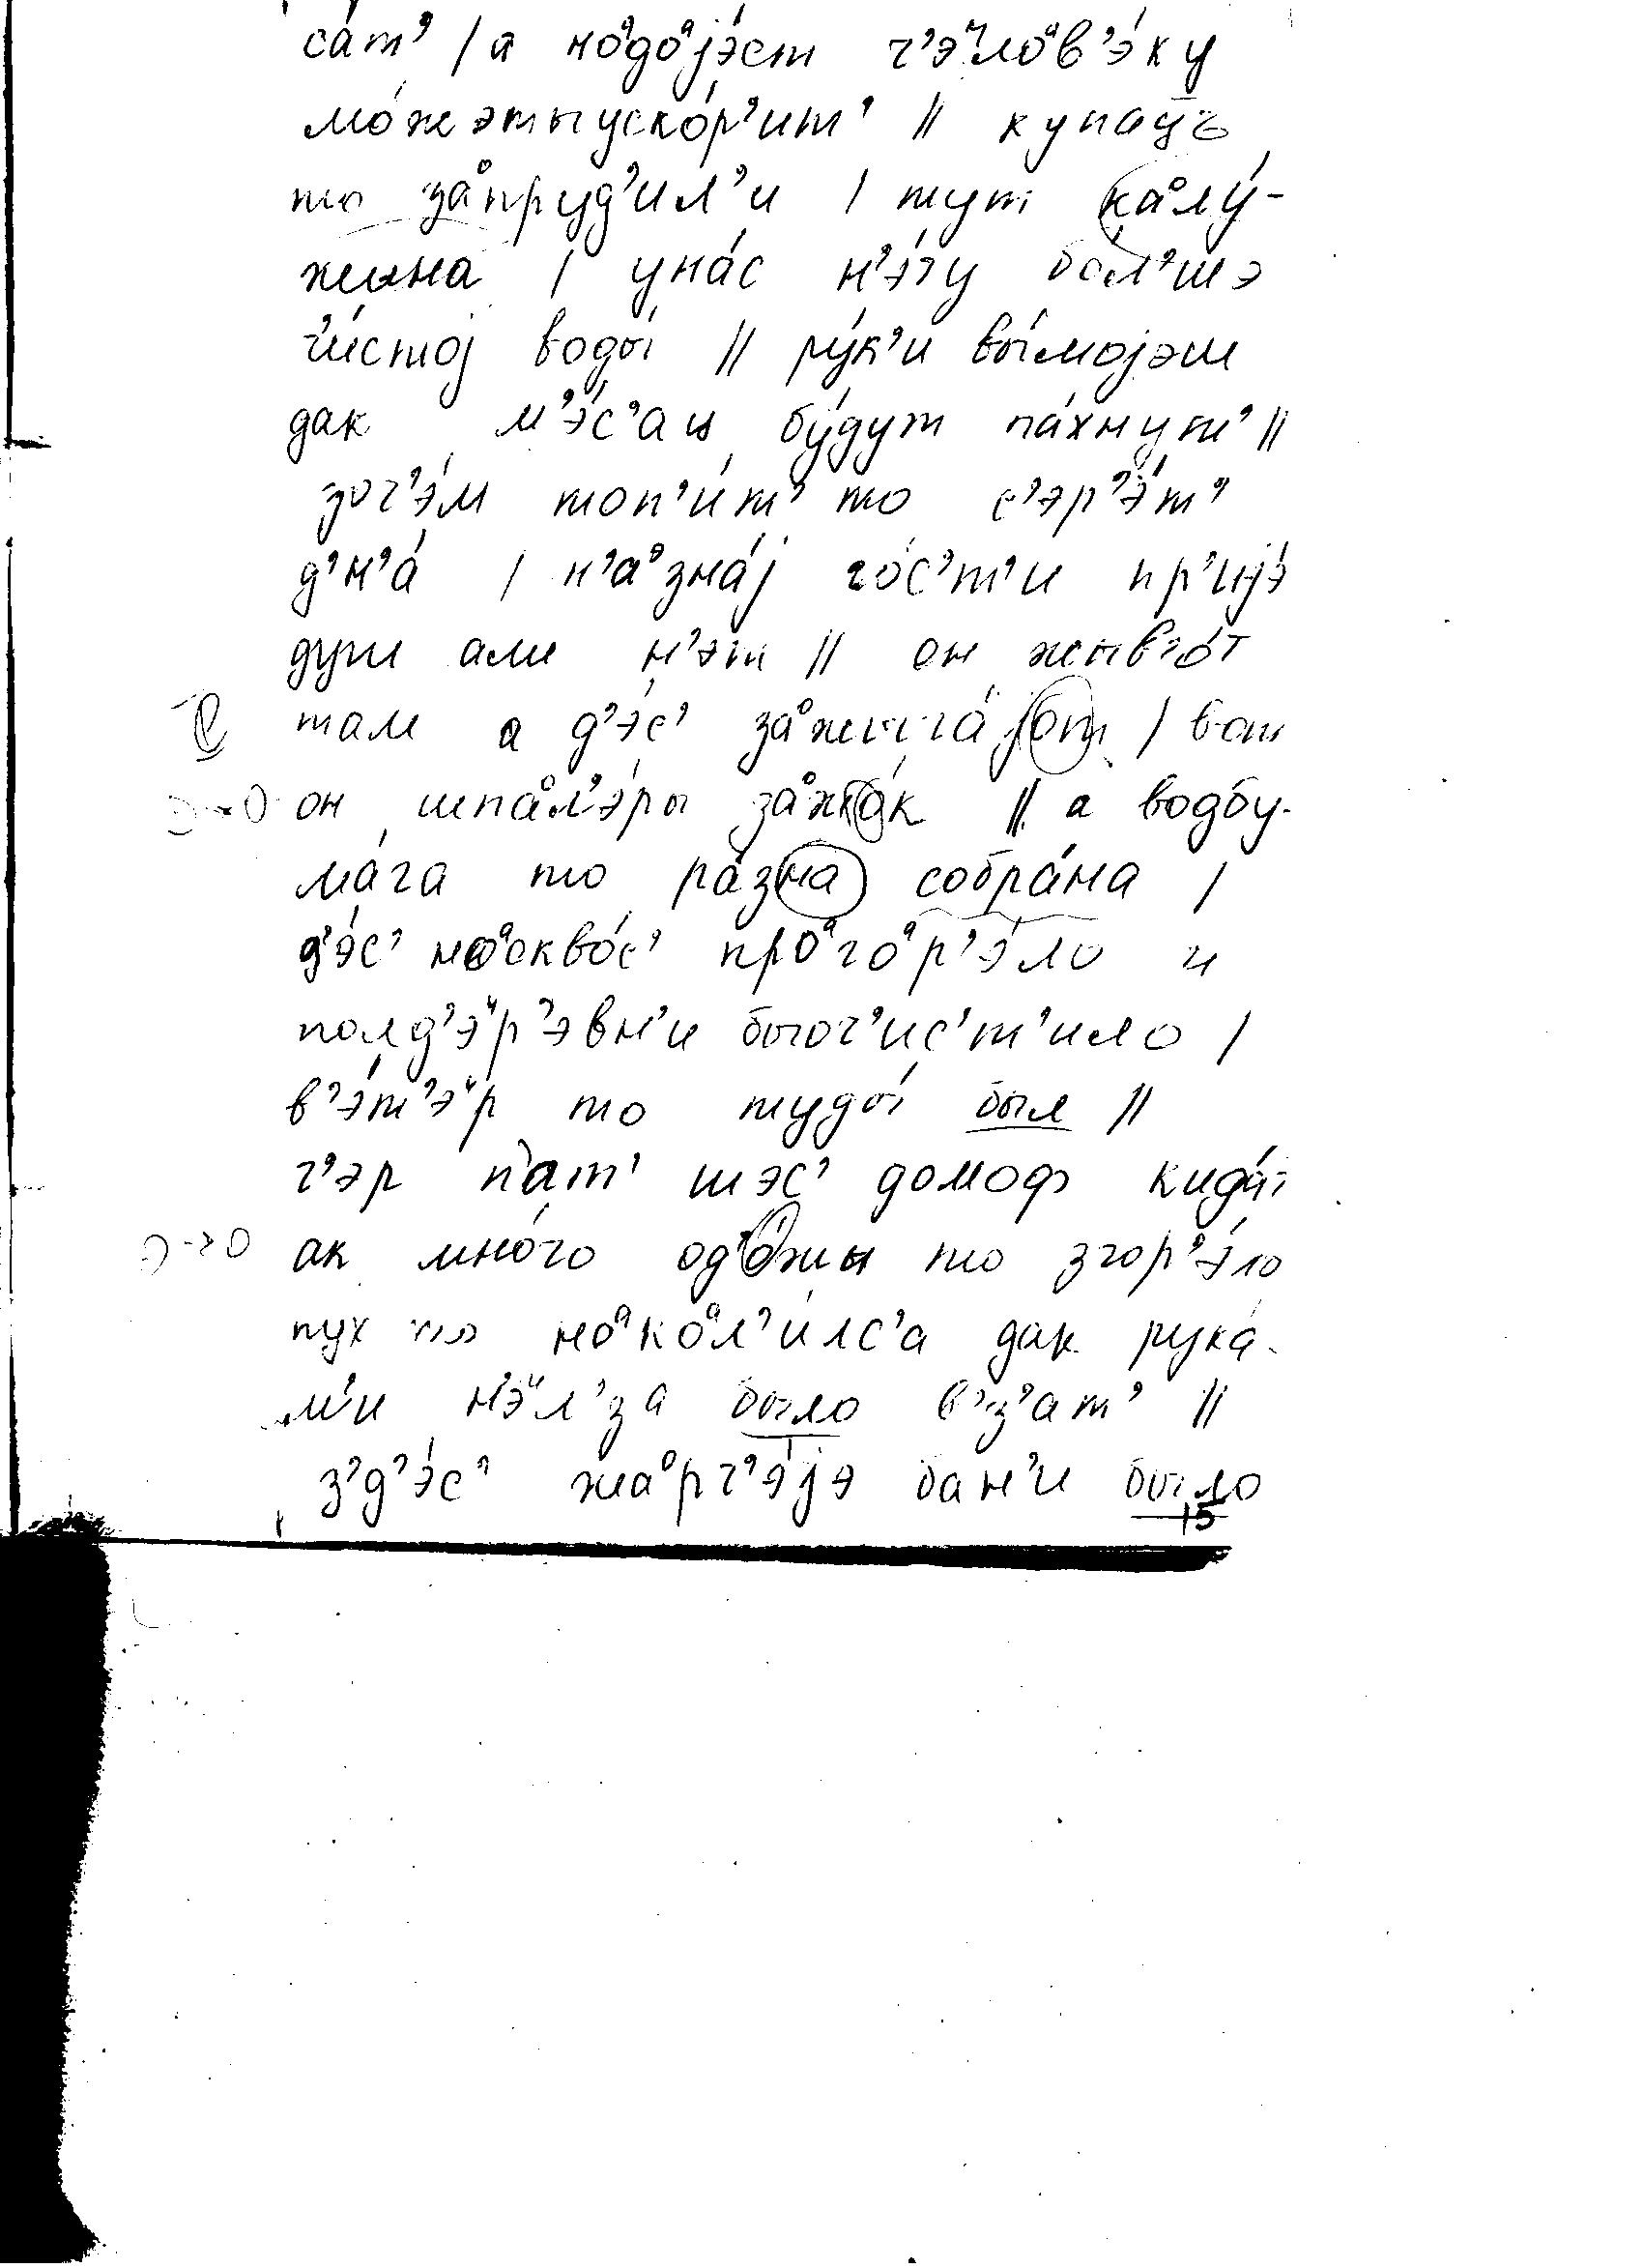 са́т’ | а но^ады^ајэ́ст ч’э^ило^ав’э́ку
мо́жэтыуско́р’ит’ || купац
то за^опруд’ил’и | тут ка^олу́-
жына | уна́с н’э́ту бо́л’шэ
ч’и́стој воды́ || ру́к’и вы́мојэш
дак м’э́с’ац бу́дут па́хнут’ ||
зоч’э́м топ’и́т’ то с’эр’э́т’
д’н’а́ | н’а^эзна́ј го́с’т’и пр’ијэ́
дут али н’эт || он жыв’о́т
там а д’э́с’ за^ожыга́јот | вот
он шпа^ол’э́ры за^ожга́к || а водбу-
ма́га то ра́зна собра́на |
д’э́с’ но^аскво́с’ про^аго^ар’э́ло и
полд’э^ир’эвн’и быоч’ис’т’ило |
в’э́т’э^ир то туды́ был ||
ч’эр п’ат’ шэс’ домоф кида́т
ак мно́го од’о́жы то згор’э́ло
пух то но^ако^ал’и́лс’а дак рука́-
м’и н’э^ил’за было в’з’ат’ ||
з’д’э́с’ жа^орч’э́јэ бан’и было
15
э→о
э→о